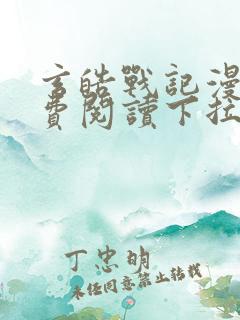 玄皓戰記漫
費閱讀下拉
丁忠明
未经同意禁止转载